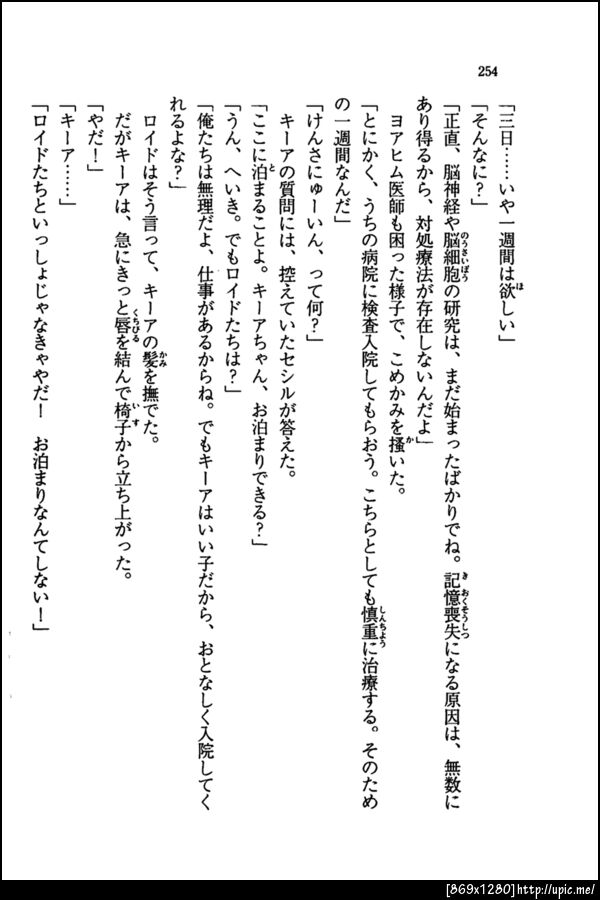 254
「三日……いや一週間は欲しい」
「そんなに？」
「正直、脳神経や脳細胞の研究は、まだ始まったばかりでね。記憶喪失になる原因は、無数に
あり得るから、対処療法が存在しないんだよ」
ヨアヒム医師も困った様子で、こめかみを掻いた。
「とにかく、うちの病院に検査入院してもらおう。こちらとしても慎重に治療する。そのため
の一週間なんだ」
「けんさにゅーいん、って何？」
キーアの質問には、控えていたセシルが答えた。
「ここに泊まることよ。キーアちゃん、お泊まりできる？」
「うん、へいき。でもロイドたちは？」
「俺たちは無理だよ、仕事があるからね。でもキーアはいい子だから、おとなしく入院してく
れるよな？」
ロイドはそう言って、キーアの髪を撫でた。
だがキーアは、急にきっと唇を結んで椅子から立ち上がった。
「やだ！」
「キーア……」
「ロイドたちといっしょじゃなきゃやだ！　お泊まりなんてしない！」
[869x1280] http://upic.me/